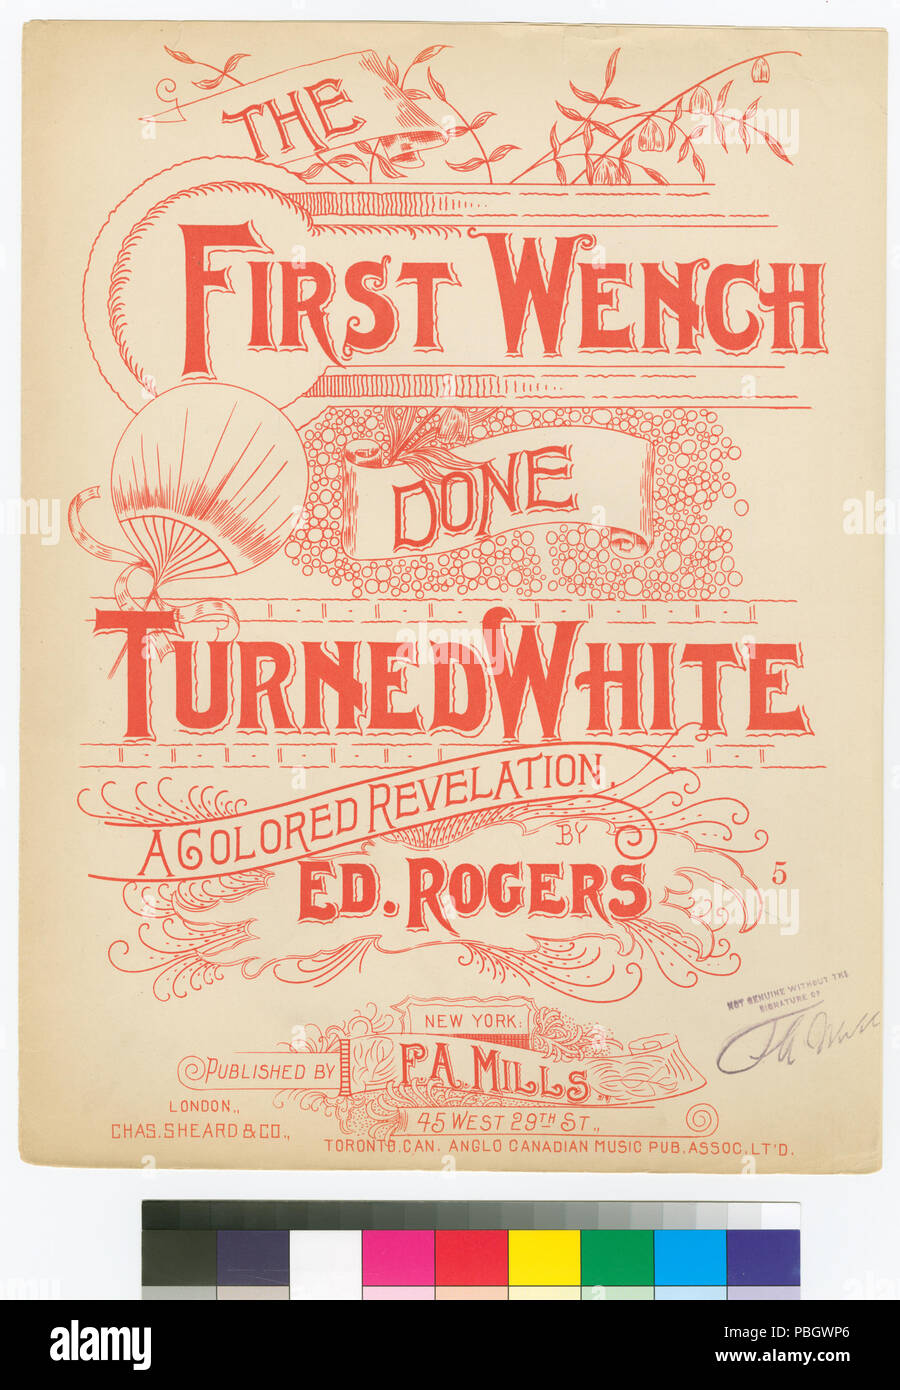 THE
FIRST WENCH
DONE
TURNED WHITE
A COLORED REVELATION.
BY
ED. ROGERS
5
NOT GENUINE WITHOUT THE
SIGNATURE OF
F A Mills
NEW YORK:
PUBLISHED BY F.A. MILLS
45 WEST 29TH ST.,
LONDON,,
CHAS. SHEARD & CO.,
TORONTO. CAN. ANGLO CANADIAN MUSIC PUB. ASSOC. LT'D.
alamy
Image ID: PBGWP6
www.alamy.com